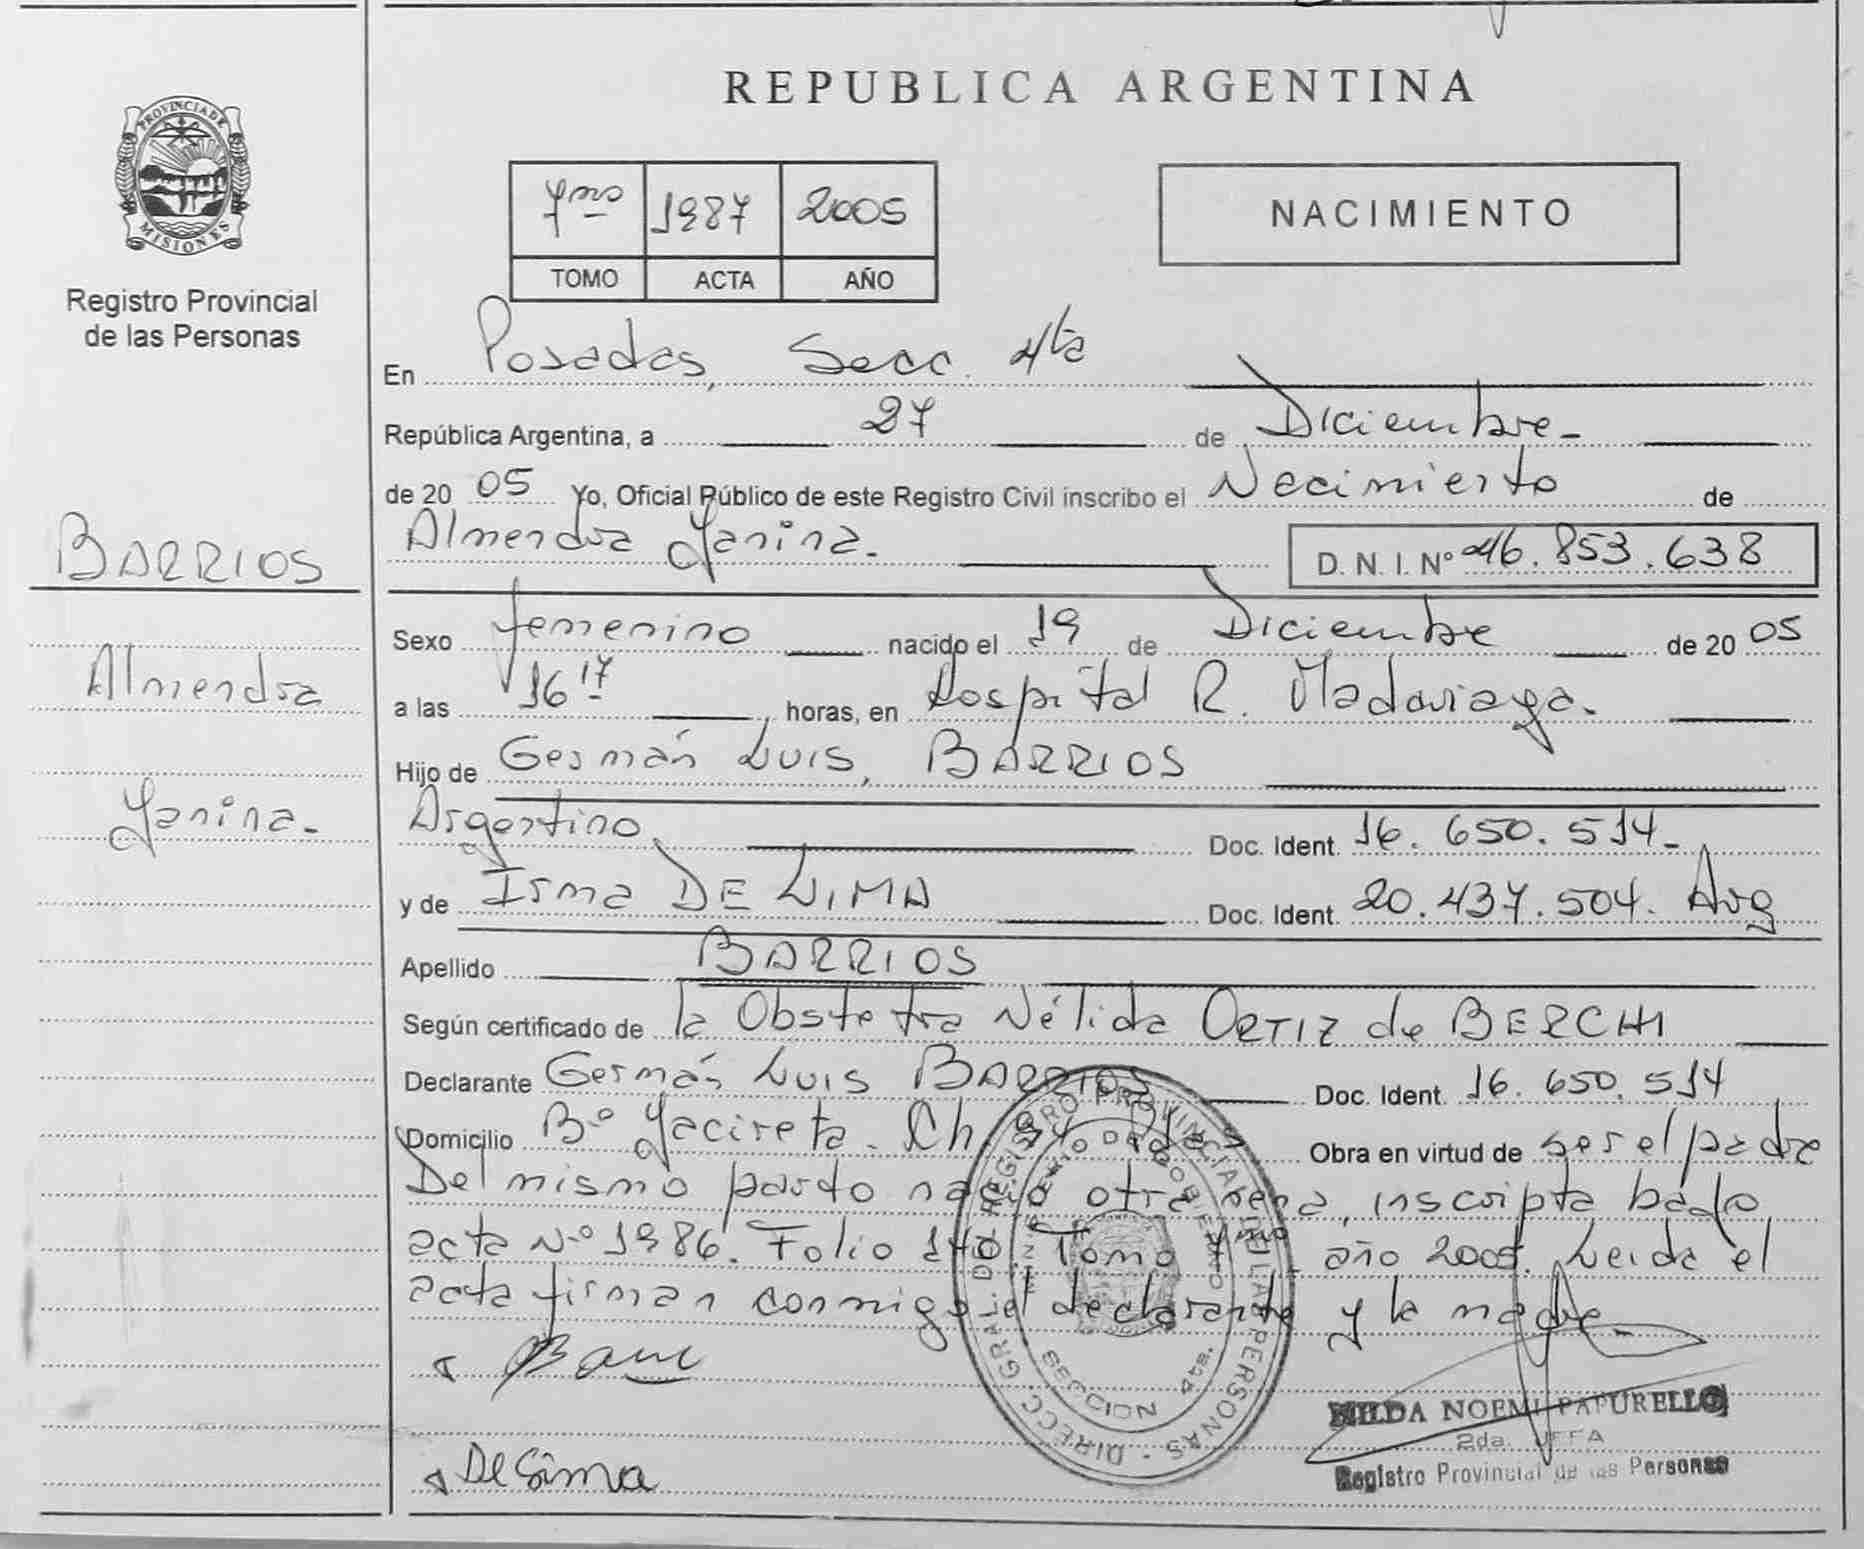 PROVINCIA DE
MISIONES
Registro Provincial
de las Personas
BARRIOS
Almendra
Yanina.
REPUBLICA ARGENTINA
7mo 1987 2005
TOMO ACTA AÑO
NACIMIENTO
En Posadas, Secc. 4ta
República Argentina, a 27 de Diciembre
de 20 05 Yo, Oficial Público de este Registro Civil inscribo el Nacimiento de
Almendra Yanina. D. N. I. Nº 46.853.638
Sexo femenino nacido el 19 de Diciembre de 20 05
a las 16 17 horas, en Hospital R. Madariaga.
Hijo de Germán Luis, BARRIOS
Argentino Doc. Ident. 16.650.514
y de Irma DE LIMA Doc. Ident. 20.437.504. Arg
Apellido BARRIOS
Según certificado de la Obstetra Nélida ORTIZ de BERCHI
Declarante Germán Luis BARRIOS Doc. Ident. 16.650.514
Domicilio Bº Yacireta. Ch. Obra en virtud de ser el padre
Del mismo parto nació otra nena, inscripta bajo
acta Nº 1986. Folio Tomo 7mo año 2005. Leida el
acta firman conmigo el declarante y la madre
De Lima
DIRECC. GRAL. DEL REGISTRO PROVINCIAL DE LAS PERSONAS
MINISTERIO DE GOBIERNO
SECCION 4ta.
HILDA NOEMI PAPURELLO
2da. JEFA
Registro Provincial de las Personas